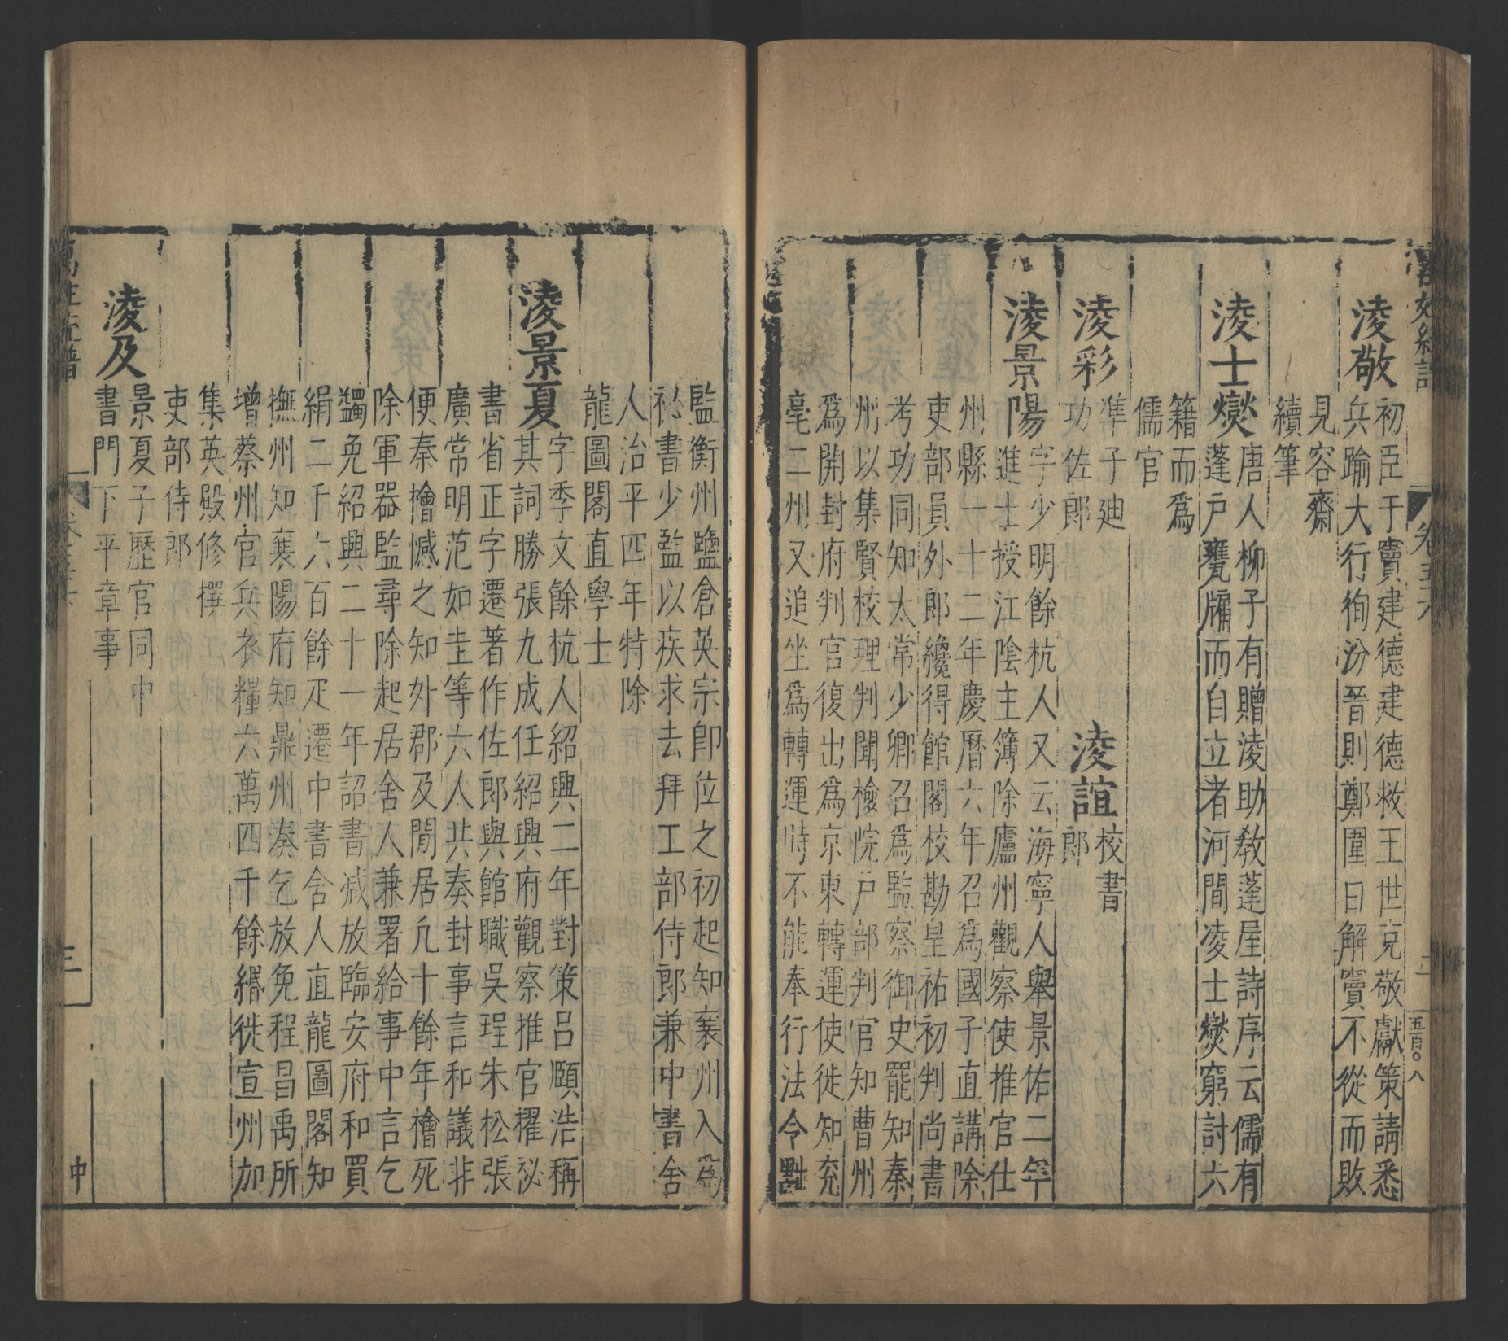 凌敬
初臣于竇建德建德救王世克敬獻策請悉
兵踰大行徇汾晉則鄭圍日解竇不從而敗
見容齋
續筆
凌士燮
唐人柳子有贈凌助教蓬屋詩序云儒有
蓬戶甕牖而自立者河間凌士燮窮討六
籍而爲
儒官
凌彩
準子廸
功佐郎
凌誼
校書
郎
凌景陽
字少明餘杭人又云海寧人舉景祐二年
進士授江陰主簿除廬州觀察使推官仕
州縣一十二年慶曆六年召爲國子直講除
吏部員外郎纔得館閣校勘皇祐初判尚書
考功同知太常少卿召爲監察御史罷知秦
州以集賢校理判聞檢院戶部判官知曹州
爲開封府判官復出爲京東轉運使徙知兖
亳二州又追坐爲轉運時不能奉行法令黜
監衡州鹽倉英宗卽位之初起知襄州入爲
秘書少監以疾求去拜工部侍郎兼中書舍
人治平四年特除
龍圖閣直學士
凌景夏
字季文餘杭人紹興二年對策呂頤浩稱
其詞勝張九成任紹興府觀察推官擢祕
書省正字遷著作佐郎與館職吳珵朱松張
廣常明范如圭等六人共奏封事言和議非
便秦檜憾之知外郡及閒居凢十餘年檜死
除軍器監尋除起居舍人兼署給事中言乞
蠲免紹興二十一年詔書减放臨安府和買
絹二千六百餘疋遷中書舍人直龍圖閣知
撫州知襄陽府知鼎州奏乞放免程昌禹所
增蔡州官兵衣糧六萬四千餘緡徙宣州加
集英殿修撰
吏部侍郎
凌及
景夏子歷官同中
書門下平章事
卷五十六
二
五百〇八
三
中